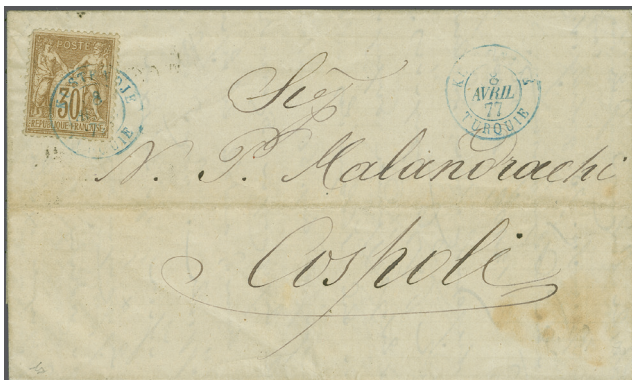 POSTE
30c
REPUBLIQUE FRANÇAISE
8
AVRIL
77
TURQUIE
Sig
N. P. Malandrachi
Cospoli